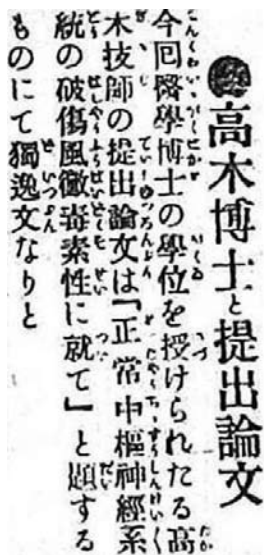 ●高木博士と提出論文
今回醫學博士の學位を授けられたる高
木技師の提出論文は「正常中樞神經系
統の破傷風黴毒素性に就て」と題する
ものにて獨逸文なりと